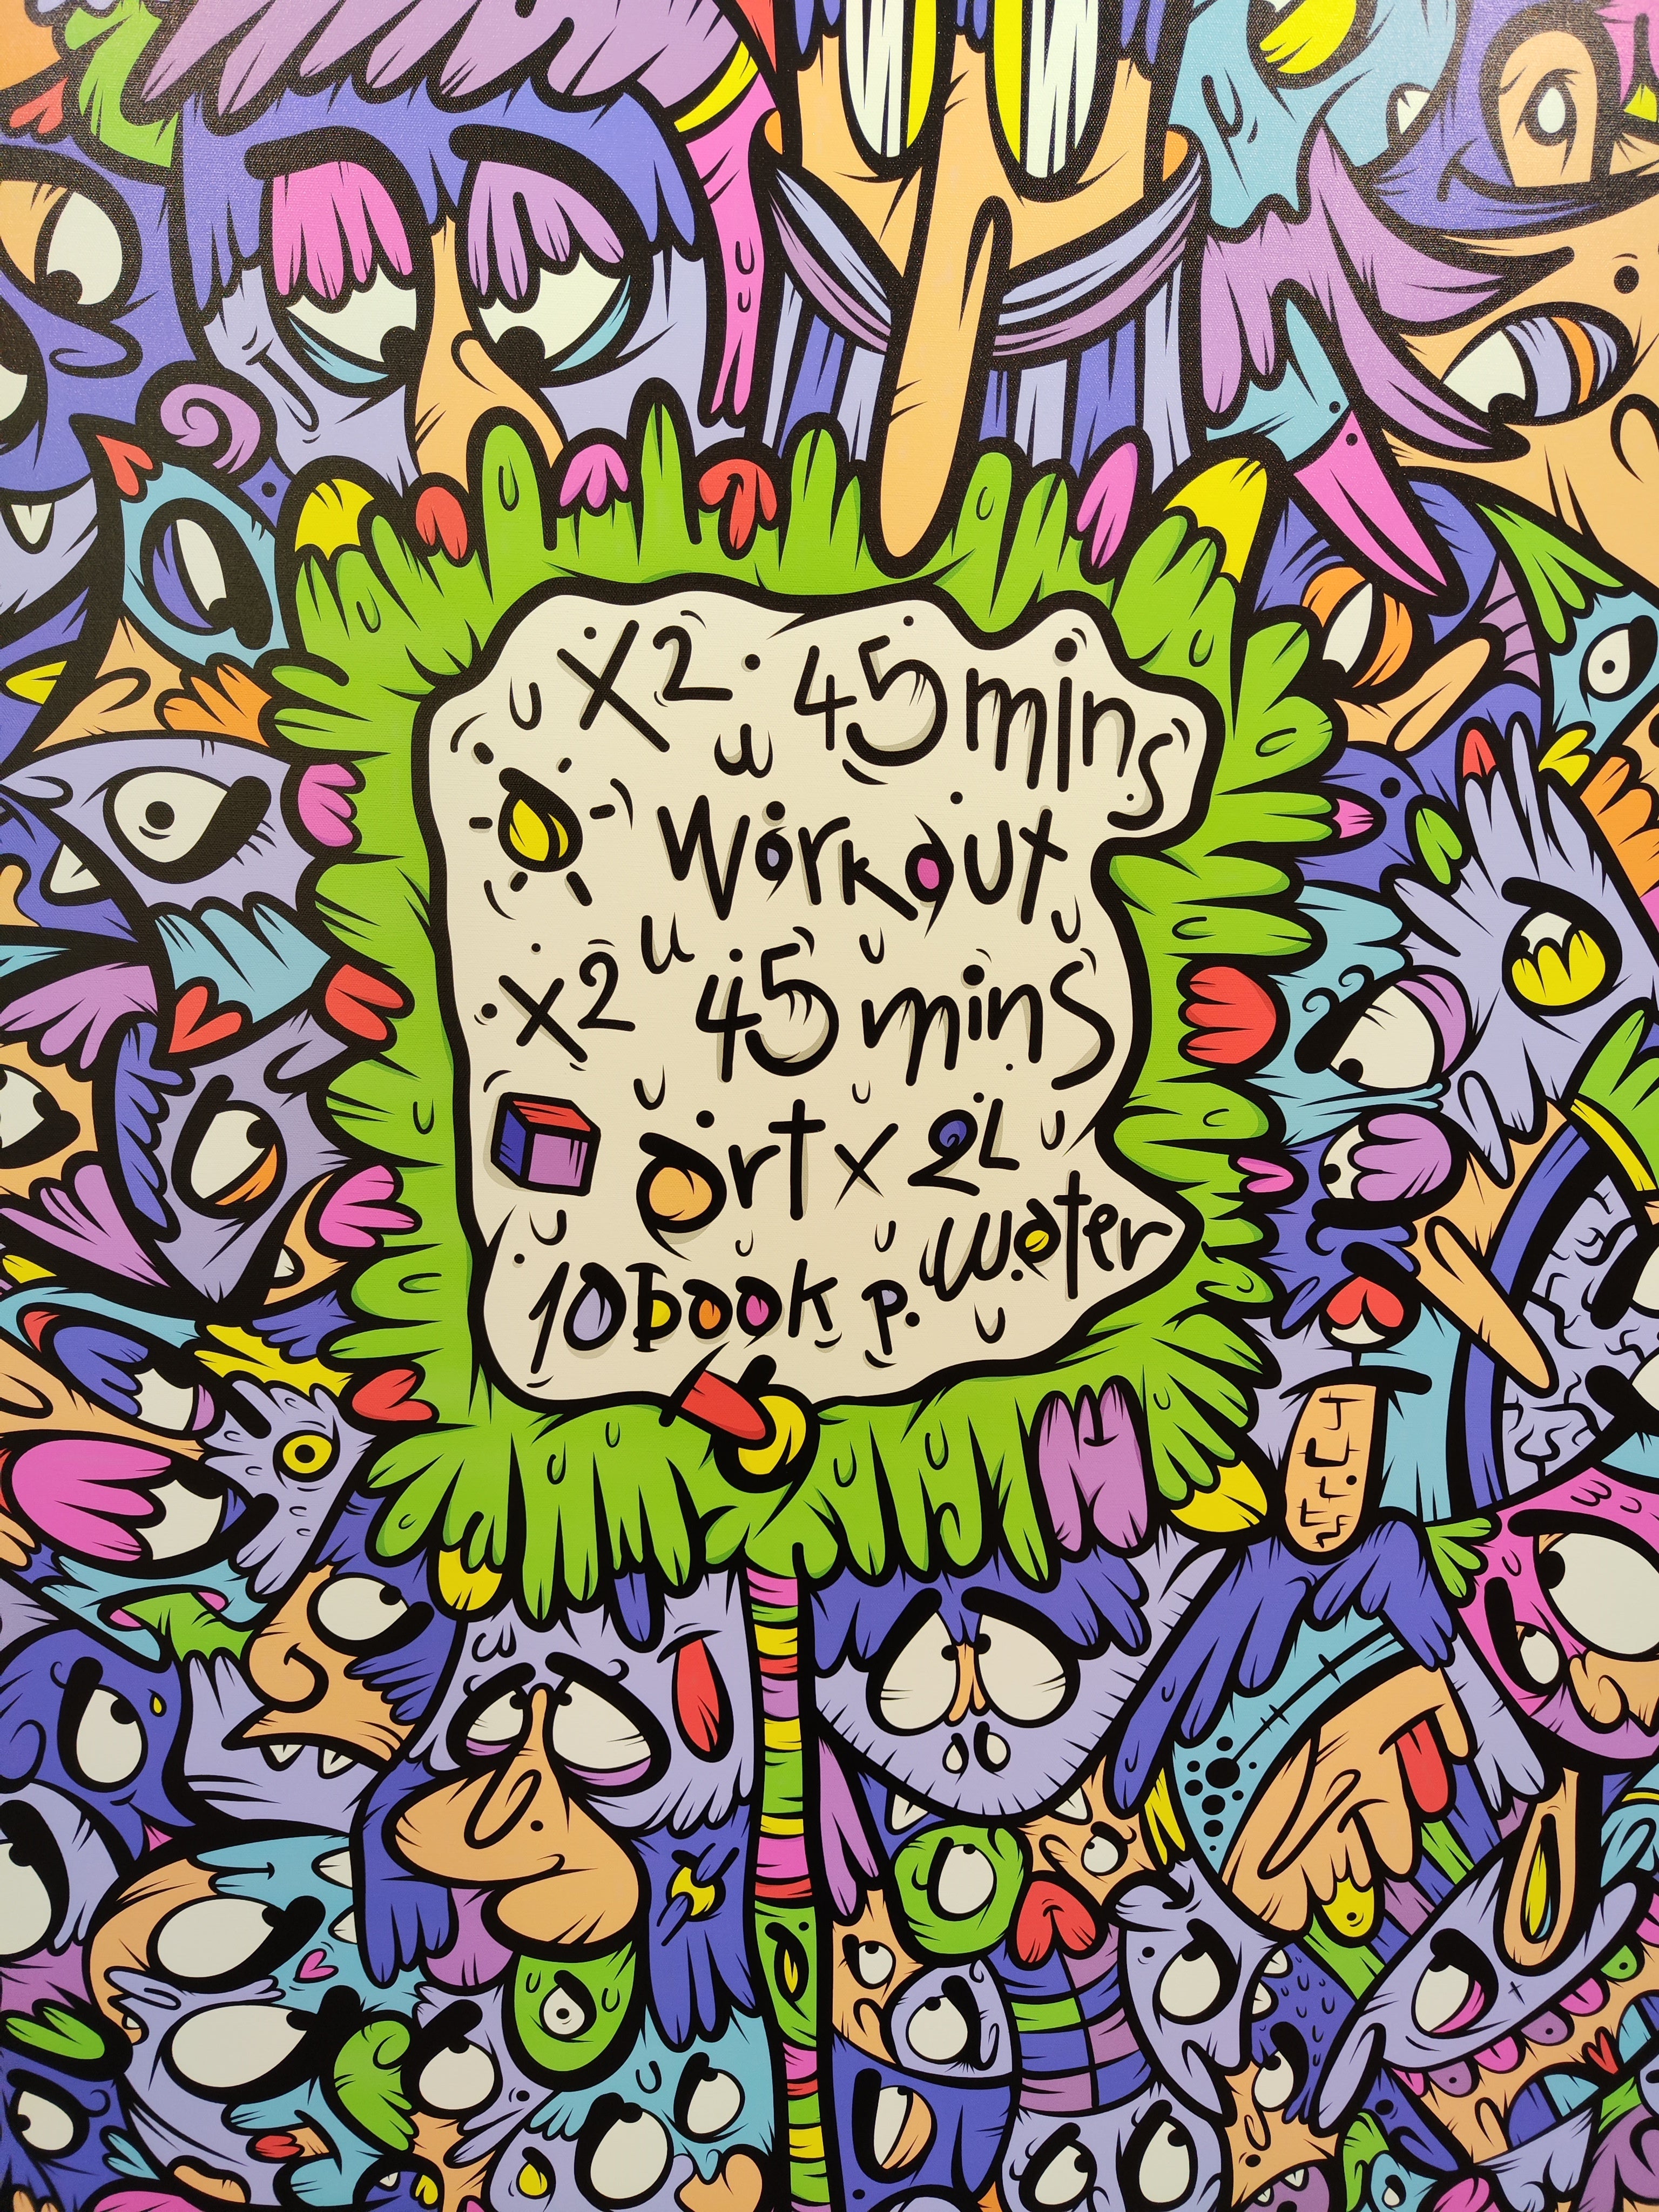 x2 45 mins
workout
x2 45 mins
art x 2L
water
10 book p.